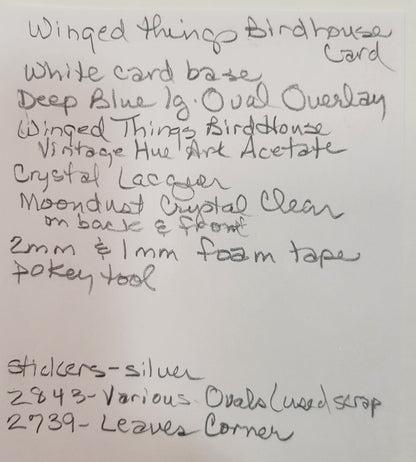 Winged things Birdhouse
Card
White card base
Deep Blue lg. Oval Overlay
Winged Things BirdHouse
Vintage Hue Art Acetate
Crystal Lacquer
Moondust Crystal Clear
on back & front
2mm & 1mm foam tape
pokey tool
stickers-silver
2843-Various Ovals (used scrap
2739-Leaves Corner